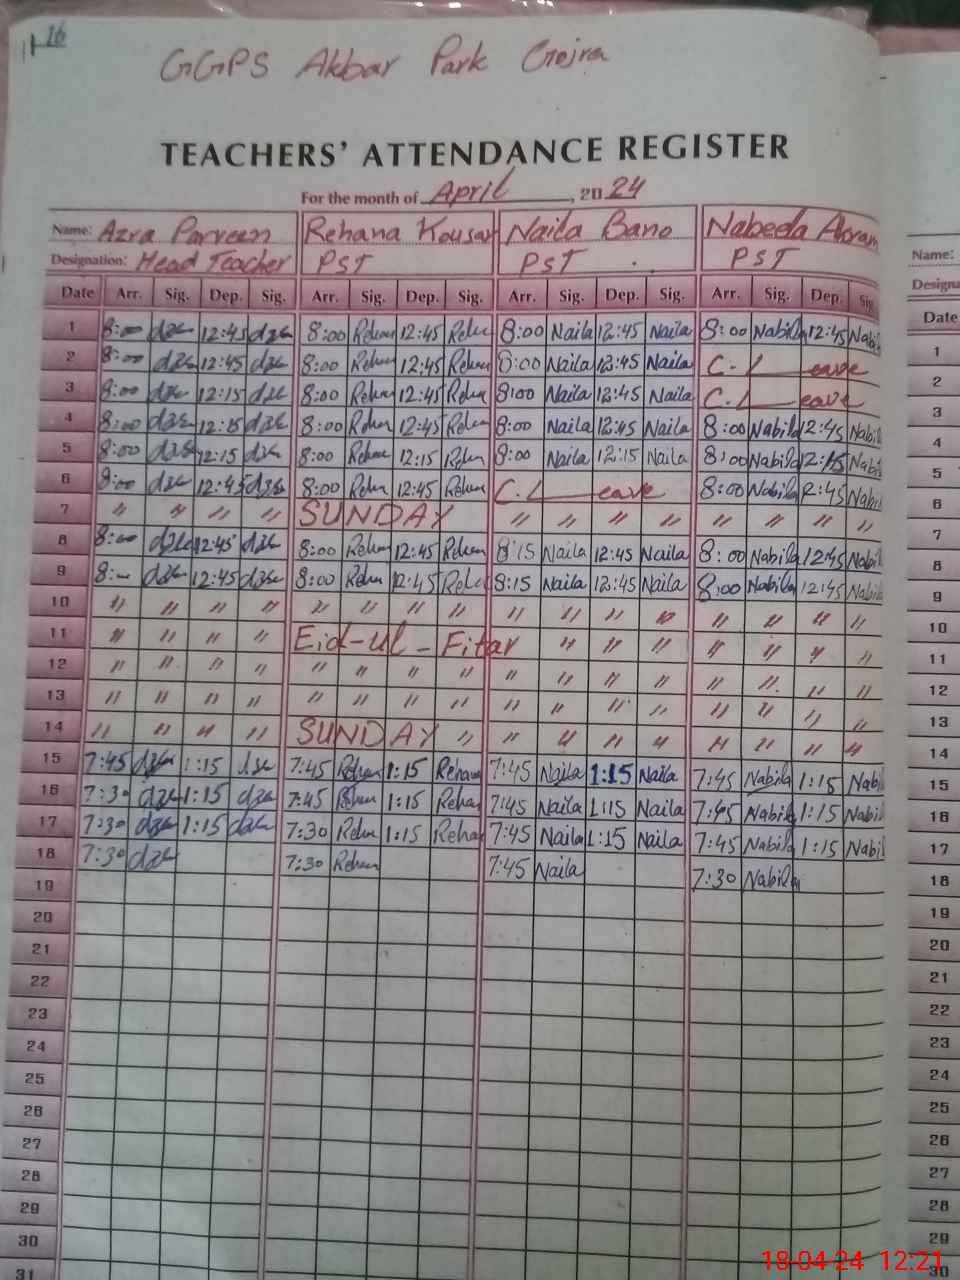 16
GGPS Akbar Park Gojra
TEACHERS' ATTENDANCE REGISTER
For the month of April, 2024
Name: Azra Parveen Rehana Kousar Naila Bano Nabeela Akram Name:
Designation: Head Teacher PST PST PST Designa
Date Arr. Sig. Dep. Sig. Arr. Sig. Dep. Sig. Arr. Sig. Dep. Sig. Arr. Sig. Dep. Sig. Date
1 8:00 12:45 8:00 Rehan 12:45 Rehan 8:00 Naila 12:45 Naila 8:00 Nabila 12:45 Nabi 1
2 8:00 12:45 8:00 Rehan 12:45 Rehan 8:00 Naila 12:45 Naila C. Leave 2
3 8:00 12:15 8:00 Rehan 12:45 Rehan 8:00 Naila 12:45 Naila C. Leave 3
4 8:00 12:15 8:00 Rehan 12:45 Rehan 8:00 Naila 12:45 Naila 8:00 Nabila 12:45 Nabi 4
5 8:00 12:15 8:00 Rehan 12:15 Rehan 8:00 Naila 12:15 Naila 8:00 Nabila 12:15 Nabi 5
6 8:00 12:45 8:00 Rehan 12:45 Rehan C. Leave 8:00 Nabila 12:45 Nabi 6
7 " " " " SUNDAY " " " " " " " " 7
8 8:00 12:45 8:00 Rehan 12:45 Rehan 8:15 Naila 12:45 Naila 8:00 Nabila 12:45 Nabi 8
9 8:00 12:45 8:00 Rehan 12:45 Rehan 8:15 Naila 12:45 Naila 8:00 Nabila 12:45 Nabi 9
10 " " " " " " " " " " " " " " " " 10
11 " " " " Eid-ul-Fitar " " " " " " " 11
12 " " " " " " " " " " " " " " " " 12
13 " " " " " " " " " " " " " " " " 13
14 " " " " SUNDAY " " " " " " " " " 14
15 7:45 1:15 7:45 Rehan 1:15 Rehana 7:45 Naila 1:15 Naila 7:45 Nabila 1:15 Nabi 15
16 7:30 1:15 7:45 Rehan 1:15 Rehan 7:45 Naila 1:15 Naila 7:45 Nabila 1:15 Nabi 16
17 7:30 1:15 7:30 Rehan 1:15 Rehan 7:45 Naila 1:15 Naila 7:45 Nabila 1:15 Nabil 17
18 7:30 7:30 Rehan 7:45 Naila 7:30 Nabila 18
19 19
20 20
21 21
22 22
23 23
24 24
25 25
26 26
27 27
28 28
29 29
30 30
31
18-04-24 12:21